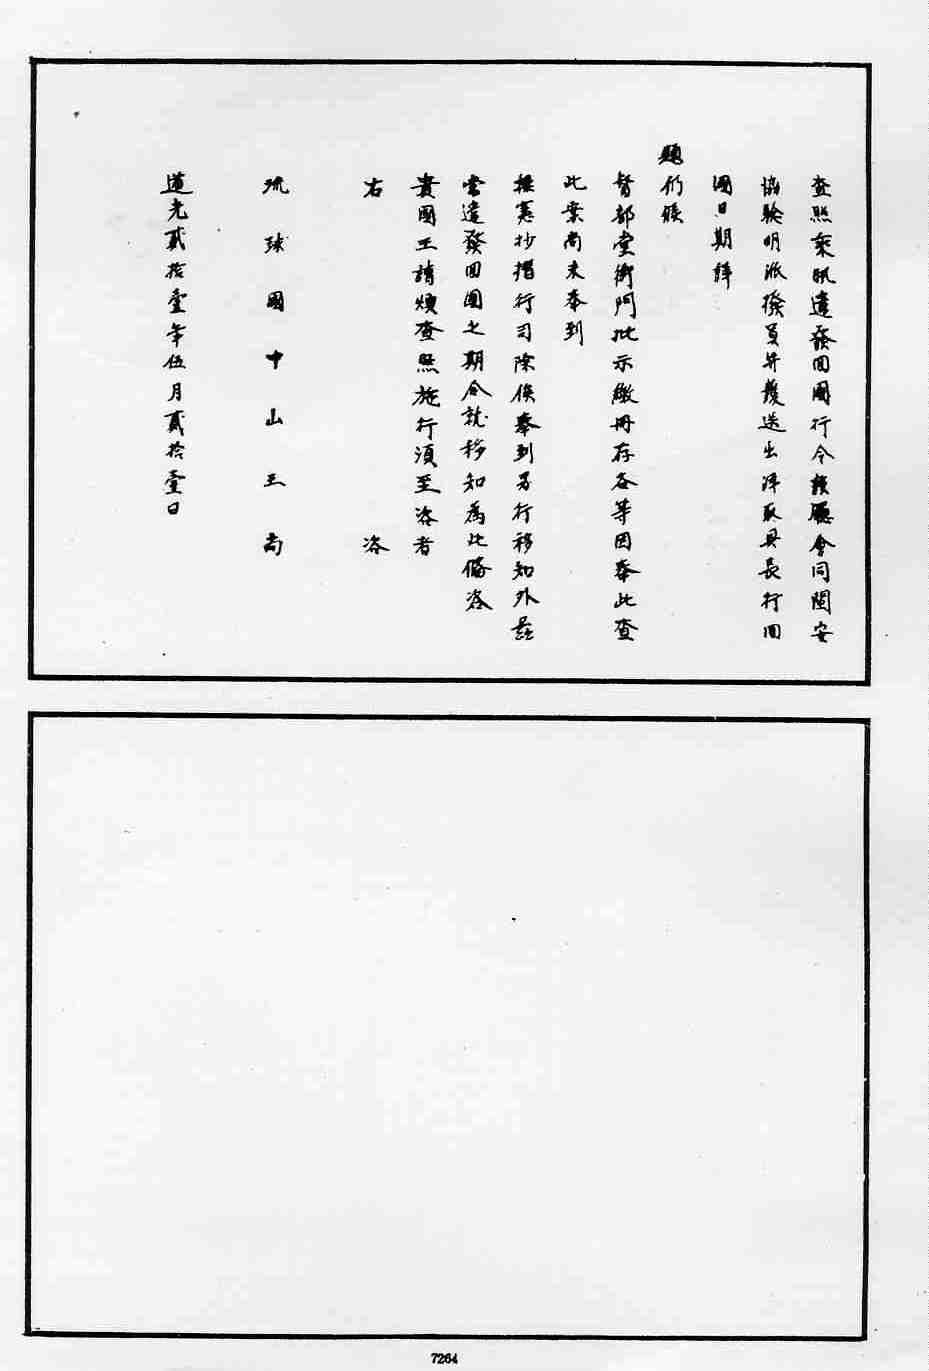 查照乘汛遣發回國行令該廳會同閩安
協驗明派撥員弁護送出洋取具長行回
國日期詳
題仍候
督部堂衙門批示繳冊存各等因奉此查
此案尚未奉到
撫憲抄摺行司除俟奉到另行移知外茲
當遣發回國之期合就移知為此備咨
貴國王請煩查照施行須至咨者
右 咨
琉球國中山王尚
道光貳拾壹年伍月貳拾壹日
7264